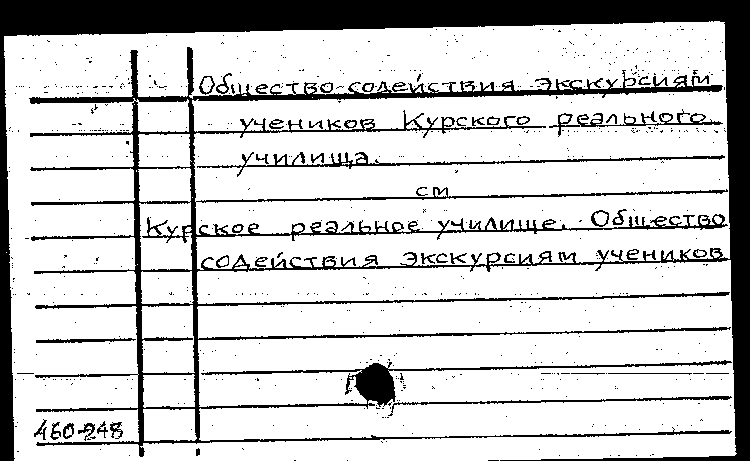 Общество содействия экскурсиям
учеников Курского реального
училища.
см
Курское реальное училище. Общество
содействия экскурсиям учеников
460-248